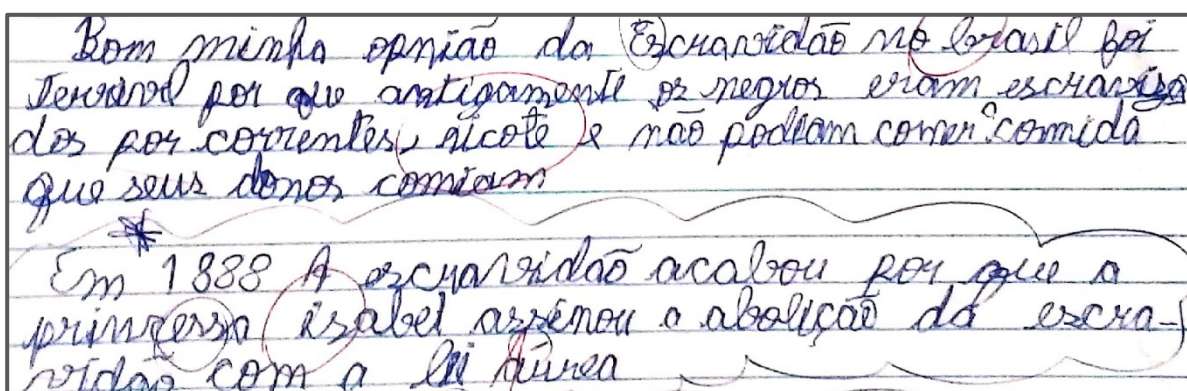 Bom minha opnião da Escravidão no brasil foi
Terrivel por que antigamente os negros eram escraviza
dos por correntes, xicote e não podiam comer comida
que seus donos comiam
Em 1888 A escravidão acabou por que a
princessa isabel assinou a abolição da escra-
vidão com a lei áurea